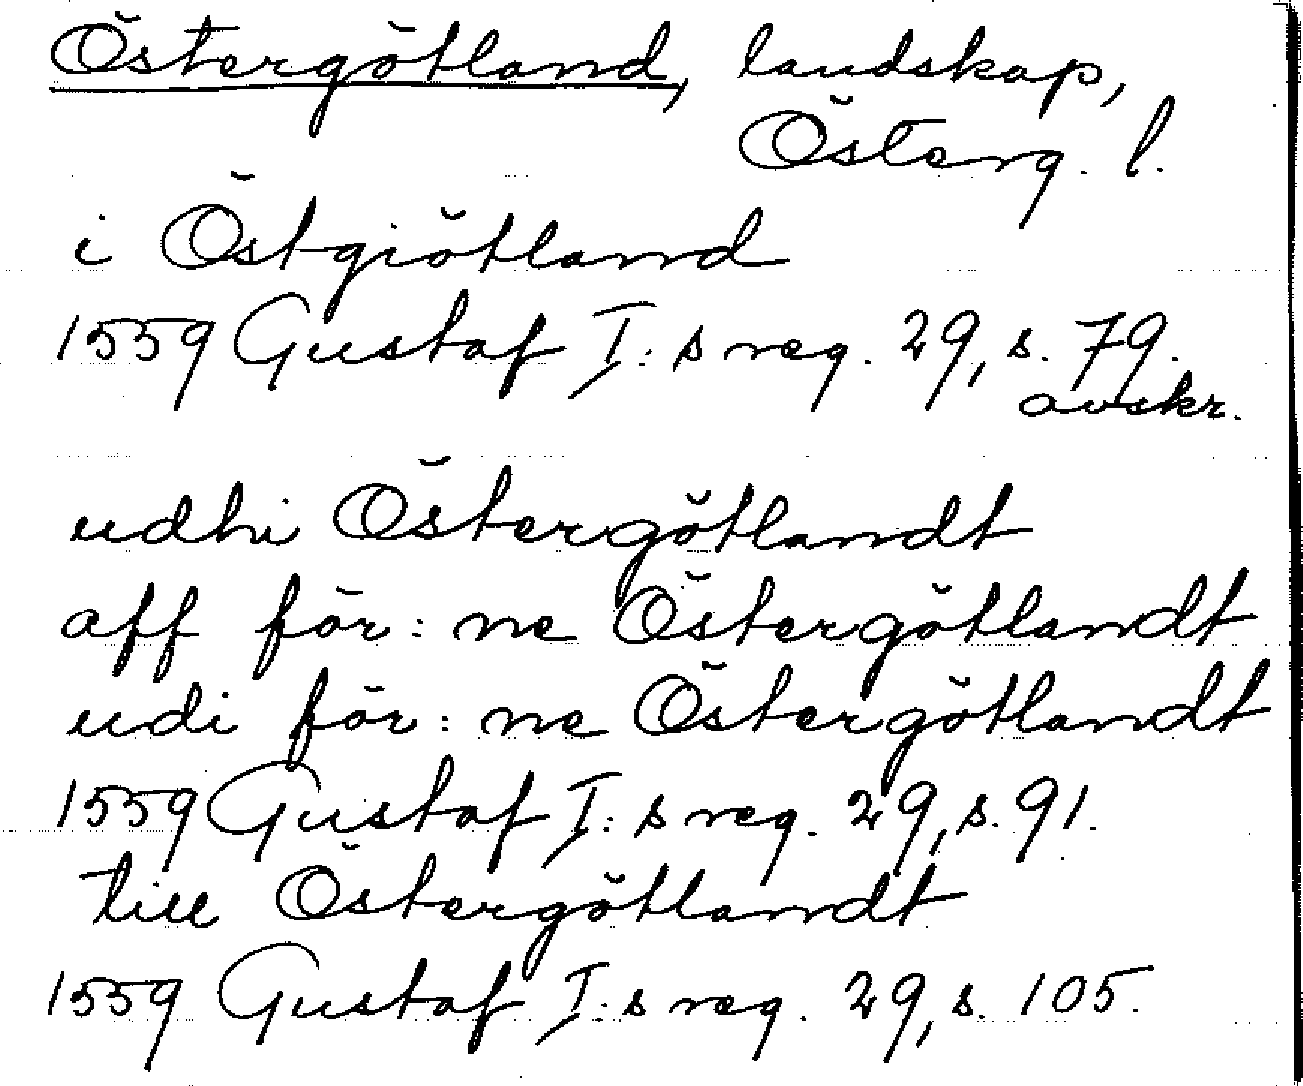 Östergötland, landskap,
Österg. l.
i Östgiötland
1559 Gustaf I:s reg. 29, s. 79.
avskr.
udhi Östergötlandt
aff för:ne Östergötlandt
udi för:ne Östergötlandt
1559 Gustaf I:s reg. 29, s. 91.
till Östergötlandt
1559 Gustaf I:s reg. 29, s. 105.